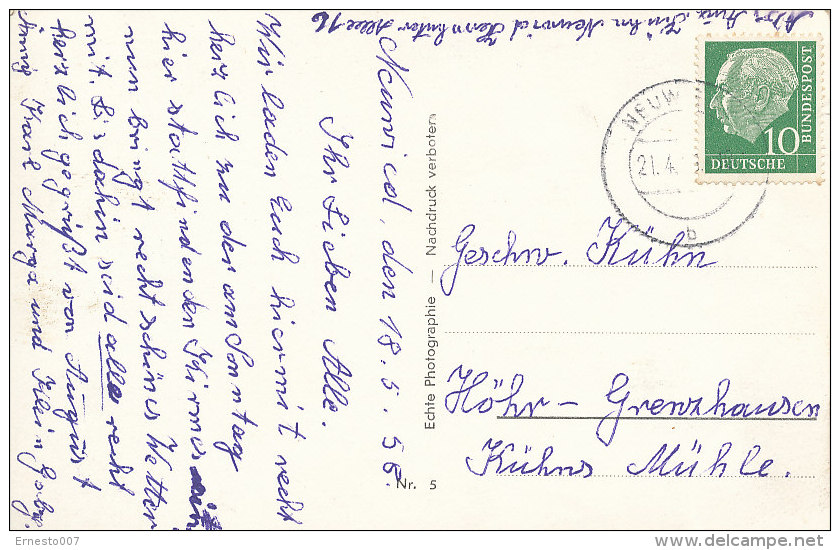 Neuwied, den 18.5.56.
Ihr Lieben Alle.
Wir laden Euch hiermit recht
herzlich zu der am Sonntag
hier stattfindenden Kirmes ein
nun bringt recht schönes Wetter
mit. Bis dahin seid alle recht
herzlich gegrüßt von August
Karl Marga und Klein Gaby.
Neuwied Herrnhuter Allee 16
Echte Photographie — Nachdruck verboten
Nr. 5
NEUW
21.4
b
10
DEUTSCHE
BUNDESPOST
Geschw. Kühn
Höhr-Grenzhausen
Kühns Mühle.
Ernesto007
delcampe.net